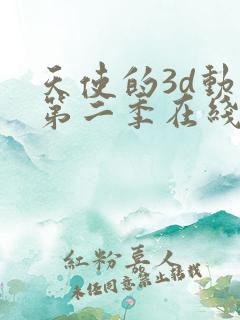 天使的3d動
第二季在綫
紅粉喜人
未经同意禁止转载